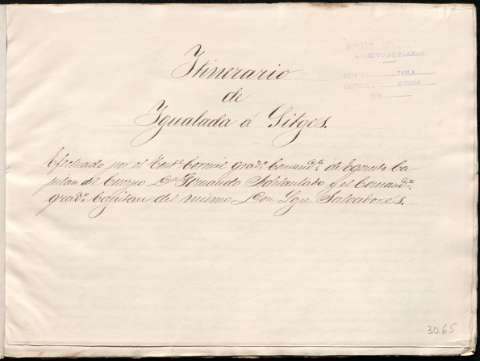 Itinerario
de
Igualada á Sitges.
Efectuado por el Tente. Coronel grado. Comandte. de Egercito Ca-
pitan del Cuerpo Dn. Fernando y el Comandte.
grado. Capitan del mismo Don
3065